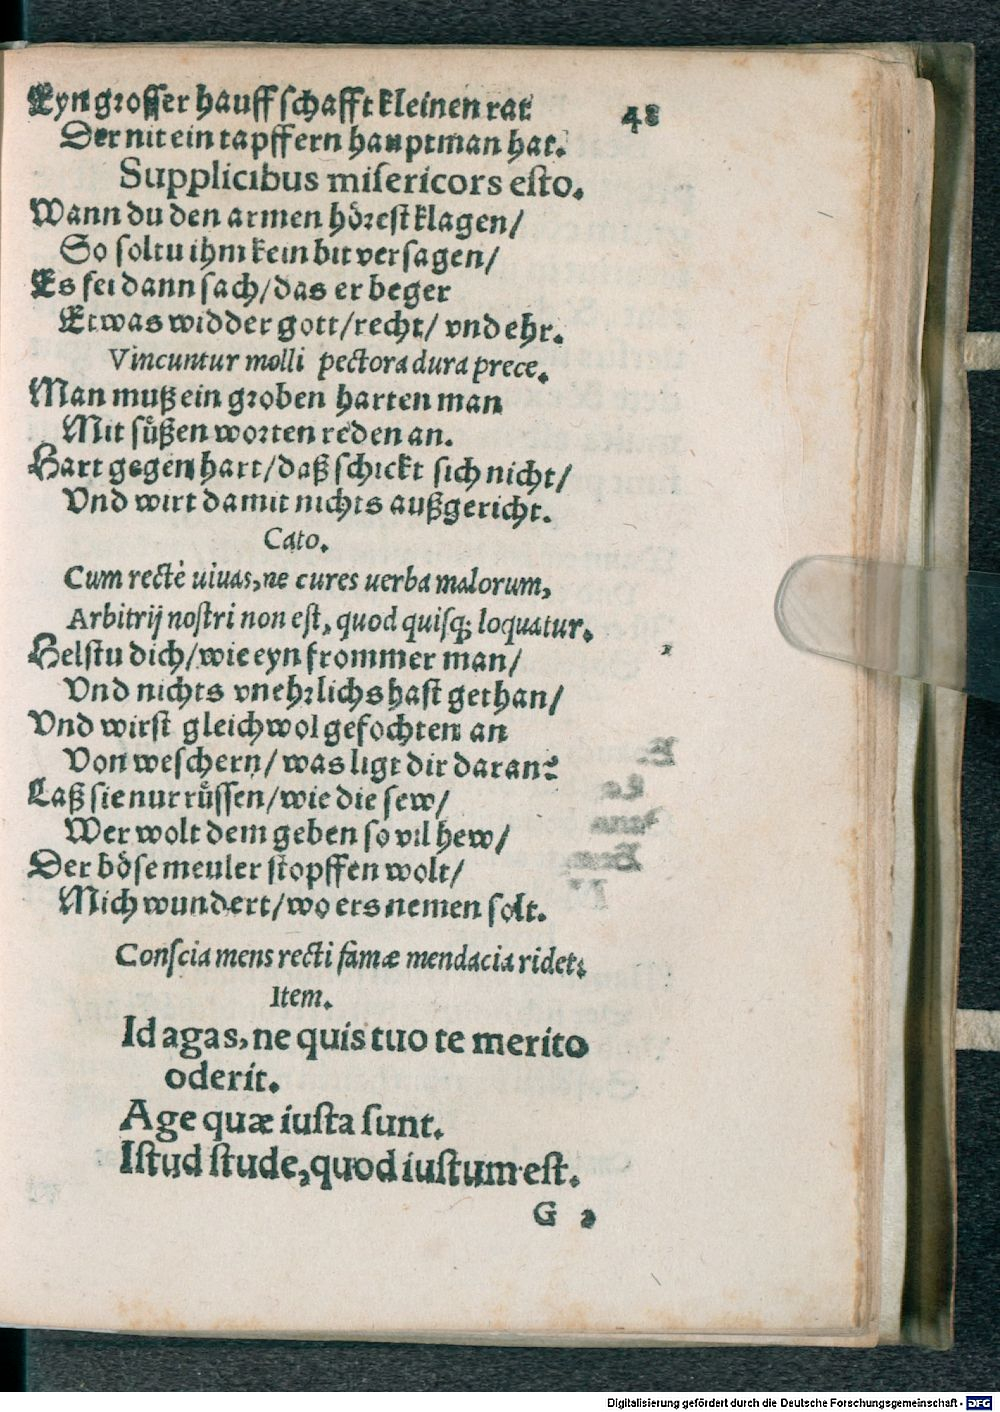 Eyn grosser hauff schafft kleinen rat 48
Der nit ein tapffern hauptman hat.
Supplicibus miſericors eſto.
Wann du den armen hoͤrest klagen/
So soltu ihm kein bit versagen/
Es sei dann sach/das er beger
Etwas widder gott/recht/ vnd ehr.
Vincuntur molli pectora dura prece.
Man muß ein groben harten man
Mit suͤßen worten reden an.
Hart gegen hart/daß schickt sich nicht/
Vnd wirt damit nichts außgericht.
Cato.
Cum rectè uiuas, ne cures uerba malorum,
Arbitrij noſtri non eſt, quod quisq; loquatur.
Helstu dich/wie eyn frommer man/
Vnd nichts vnehrlichs hast gethan/
Vnd wirst gleichwol gefochten an
Von weschern/was ligt dir daran?
Laß sie nur ruͤssen/wie die sew/
Wer wolt dem geben so vil hew/
Der boͤse meuler stopffen wolt/
Mich wundert/wo ers nemen solt.
Conſcia mens recti famæ mendacia ridet.
Item.
Id agas, ne quis tuo te merito
oderit.
Age quæ iuſta ſunt.
Iſtud ſtude, quod iuſtum eſt.
G 2
Digitalisierung gefördert durch die Deutsche Forschungsgemeinschaft - DFG